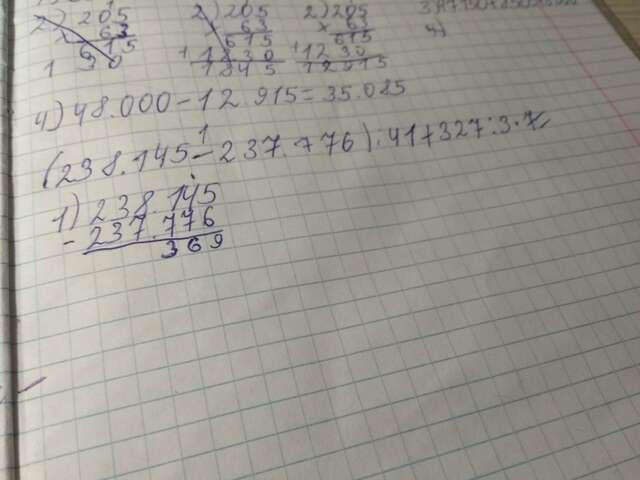 2) 205
× 63
615
1 30
2) 205
63
615
1 1230
1845
2) 205
× 63
615
1 1230
12915
4)
4) 48.000 - 12.915 = 35.085
(238.145 - 237.776) : 41 + 327 : 3 · 7
1
1) 238.145
- 237.776
369